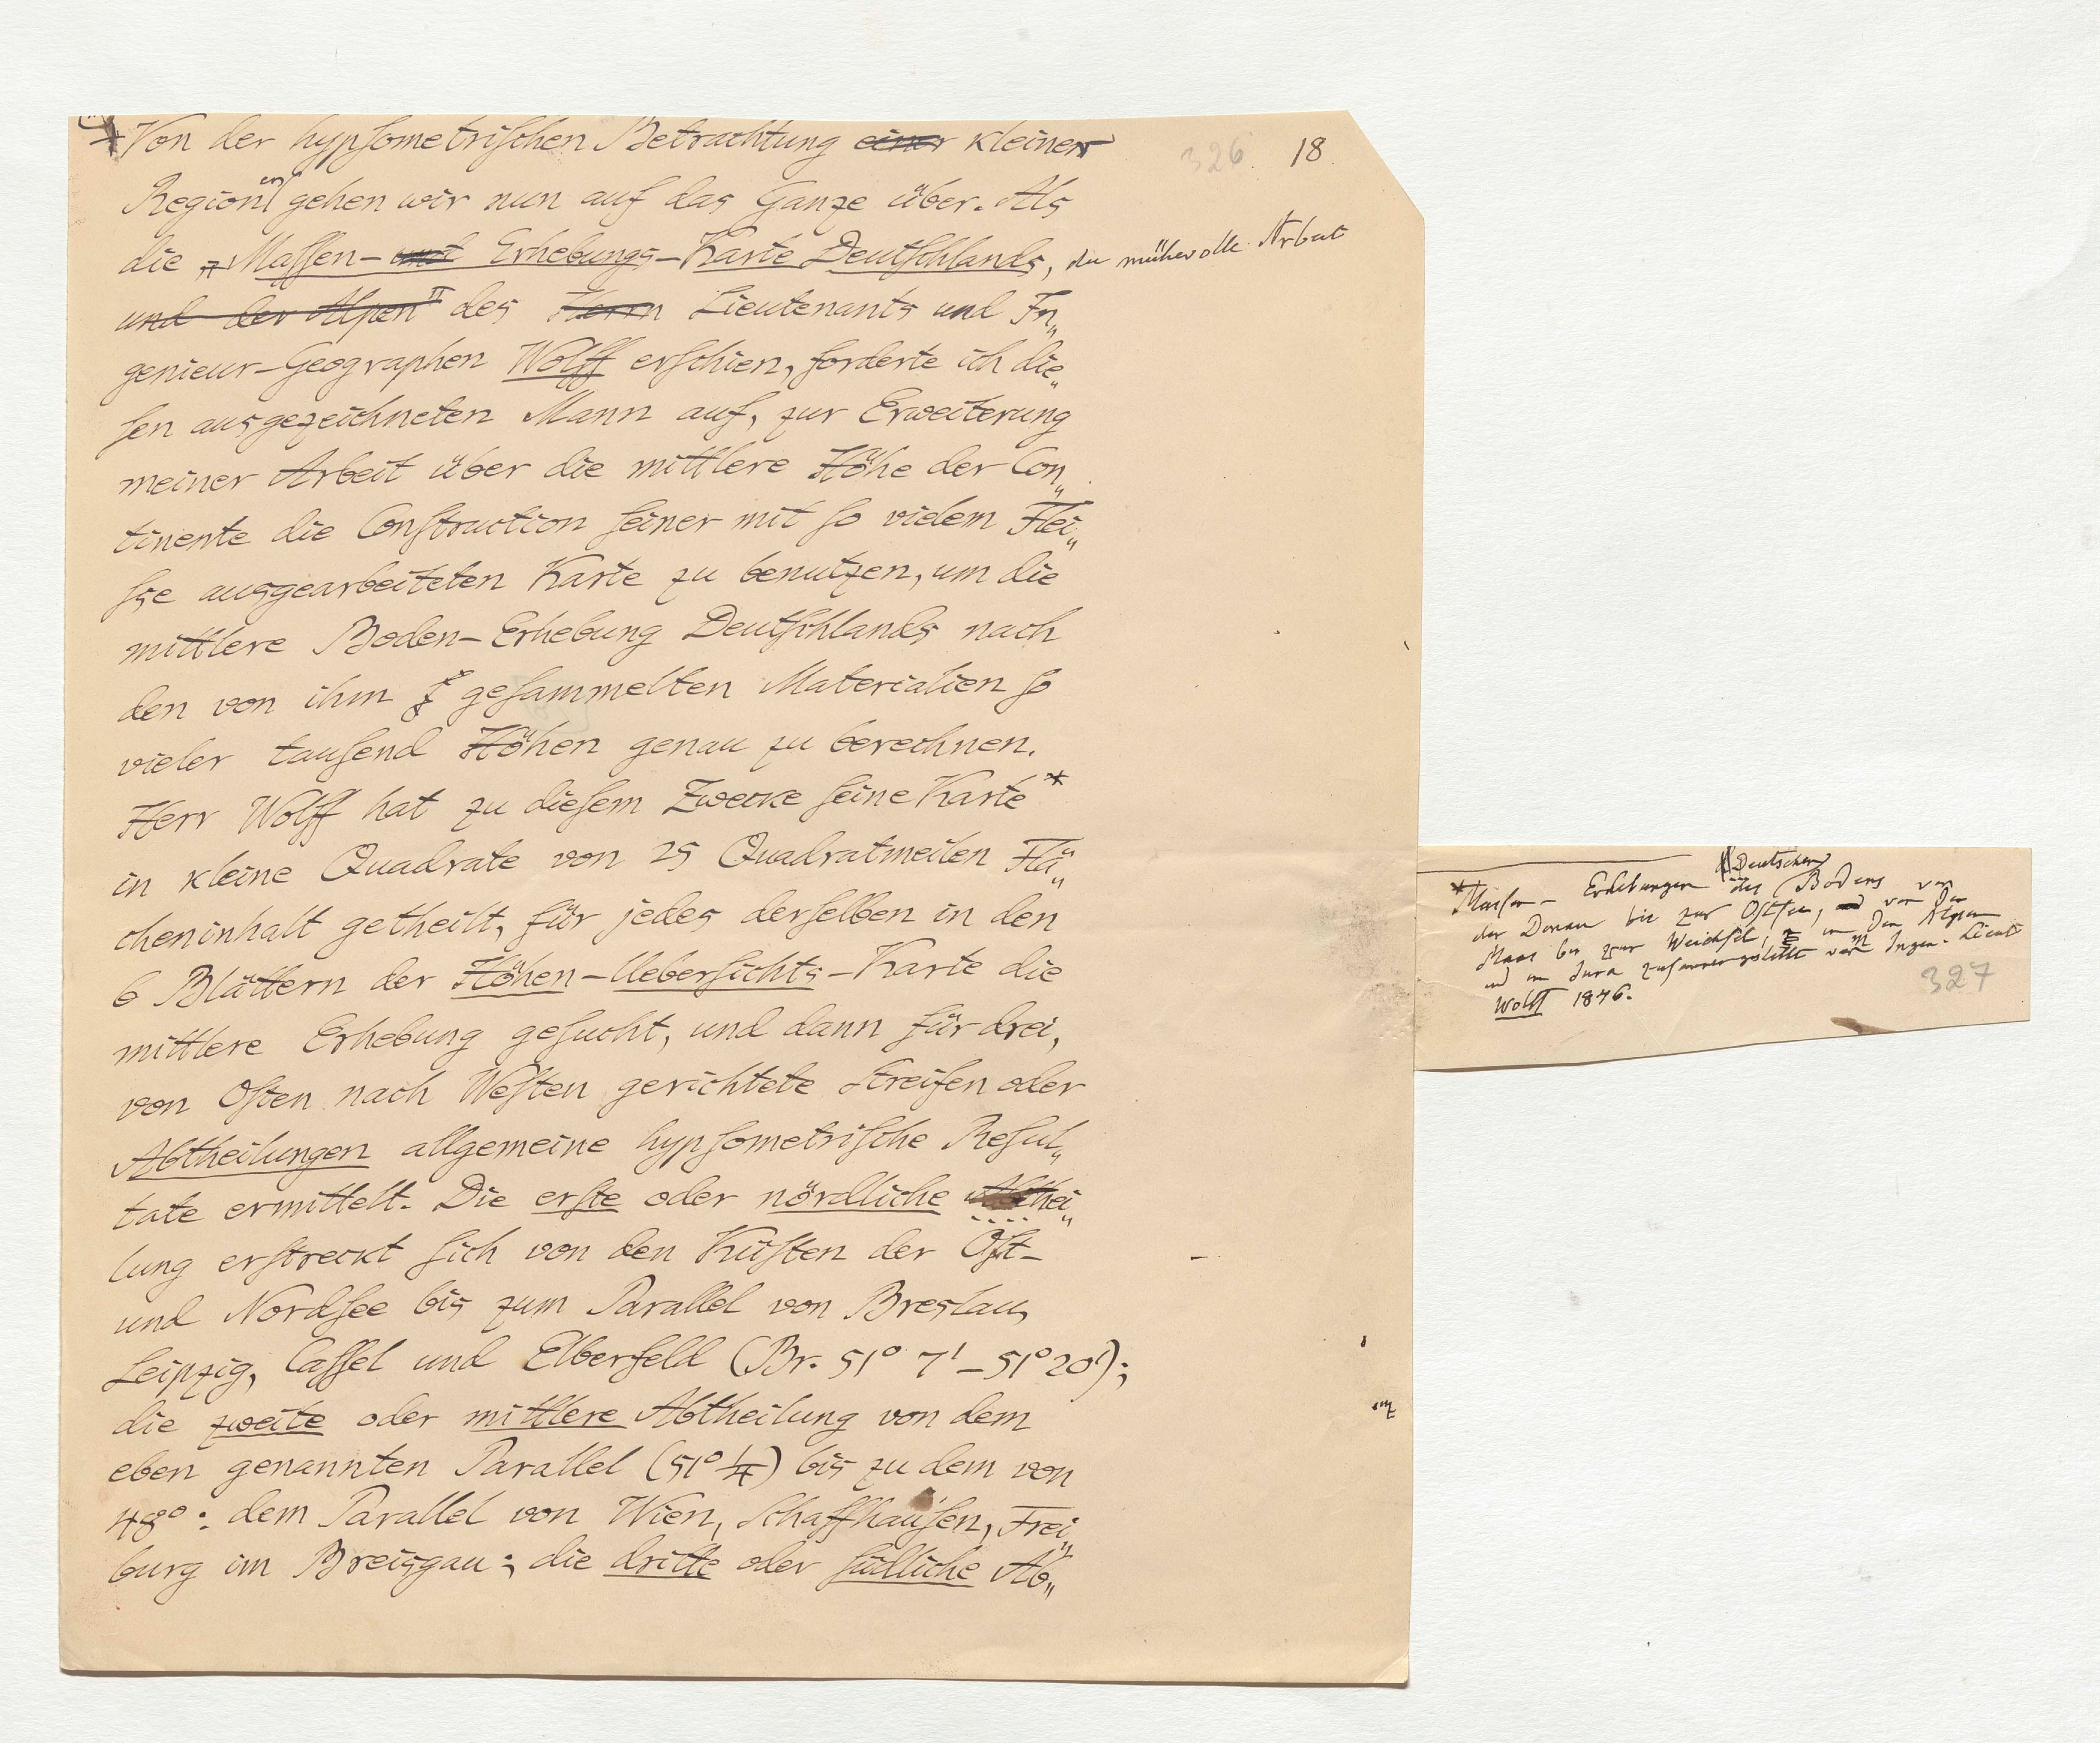 326. 18.
*Von der hypsometrischen Betrachtung einer kleinen
Regionen gehen wir nun auf das Ganze über. Als
die „Massen- und Erhebungs-Karte Deutschlands, die mühevolle Arbeit
und der Alpen" des Herrn Lieutenants und In„
genieur-Geographen Wolff erschien, forderte ich die„
sen ausgezeichneten Mann auf, zur Erweiterung
meiner Arbeit über die mittlere Höhe der Con„
tinente die Construction seiner mit so vielem Flei„
sse ausgearbeiteten Karte zu benutzen, um die
mittlere Boden-Erhebung Deutschlands nach
den von ihm gesammelten Materialien so
vieler tausend Höhen genau zu berechnen.
Herr Wolff hat zu diesem Zwecke seine Karte*
in kleine Quadrate von 25 Quadratmeilen Flä„
cheninhalt getheilt, für jedes derselben in den
6 Blättern der Höhen-Uebersichts-Karte die
mittlere Erhebung gesucht, und dann für drei,
von Osten nach Westen gerichtete Streifen oder
Abtheilungen allgemeine hypsometrische Resul„
tate ermittelt. Die erste oder nördliche Abthei„
lung erstreckt sich von den Küsten der Ost-
und Nordsee bis zum Parallel von Breslau,
Leipzig, Cassel und Elberfeld (Br. 51° 7' – 51° 20');
die zweite oder mittlere Abtheilung von dem
eben genannten Parallel (51° 1/4) bis zu dem von
48°: dem Parallel von Wien, Schaffhausen, Frei„
burg im Breisgau; die dritte oder südliche Ab„
*Massen- Erhebungen des Deutschen Bodens von
der Donau bis zur Ostsee, und von der
Maas bis zur Weichsel; in den Alpen
und im Jura zusammengestellt vom Ingen. Lieut.
Wolff 1846.
327